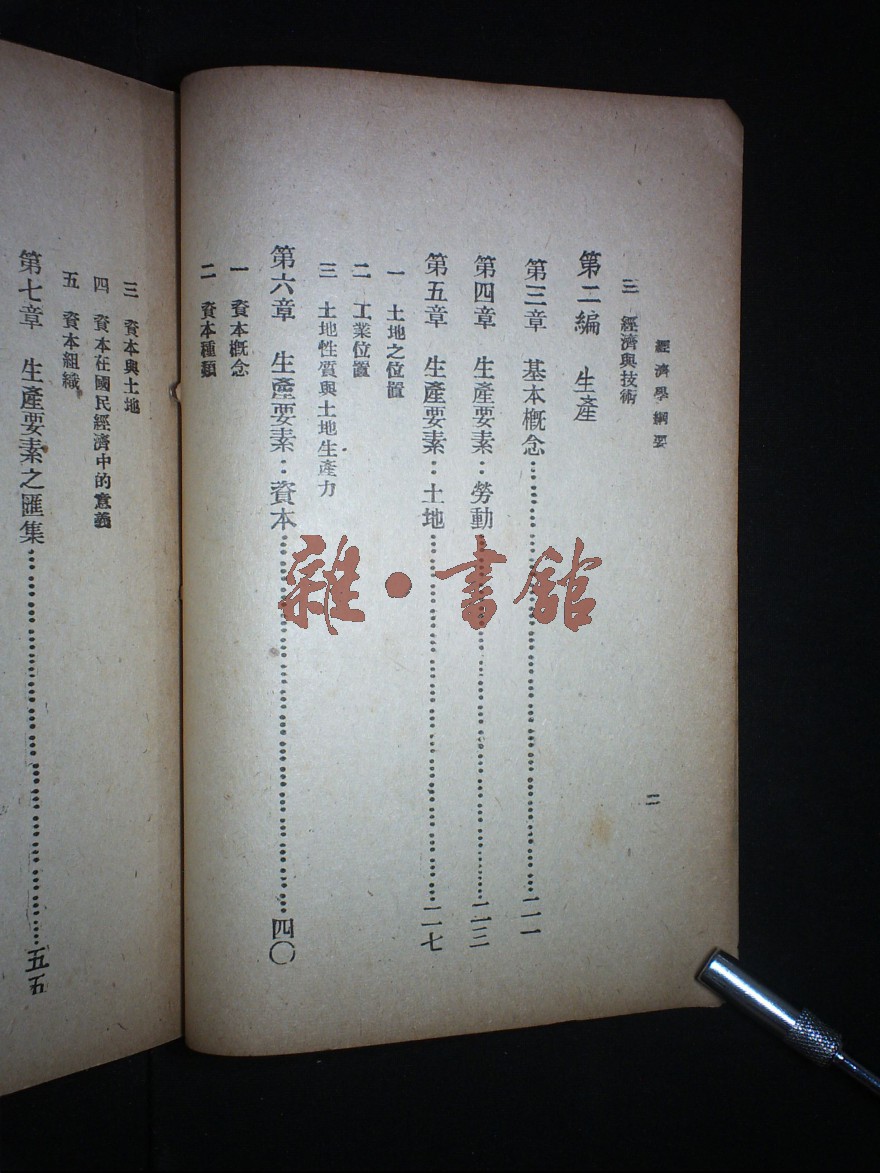 經濟學綱要
二
三 經濟與技術
第二編 生產
第三章 基本概念……二一
第四章 生產要素：勞動……二三
第五章 生產要素：土地……二七
一 土地之位置
二 工業位置
三 土地性質與土地生產力
第六章 生產要素：資本……四〇
一 資本概念
二 資本種類
三 資本與土地
四 資本在國民經濟中的意義
五 資本組織
第七章 生產要素之匯集……五五
雜·書館